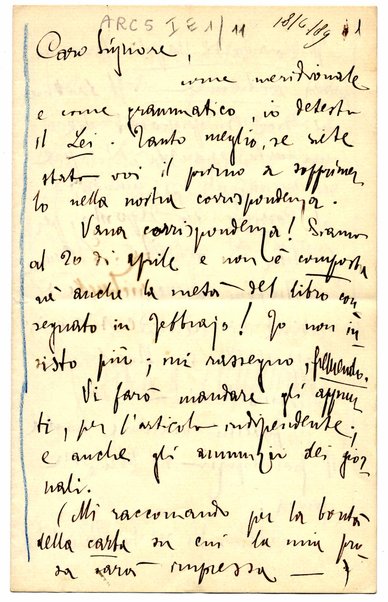 ARC 5 I E 1/11
18/6/89
1
Caro Signore,
come meridionale
e come grammatico, io detesto
il Lei. Tanto meglio, se siete
stato voi il primo a sopprimer
lo nella nostra corrispondenza.
Vana corrispondenza! Siamo
al 20 di aprile e non è composta
nè anche la metà del libro con
segnato in febbrajo! Io non in
sisto più; mi rassegno, fremendo.
Vi farò mandare gli appun
ti, per l'articolo indipendente;
e anche gli annunzi dei gior
nali.
(Mi raccomando per la bontà
della carta su cui la mia pro
sa sarà impressa — )